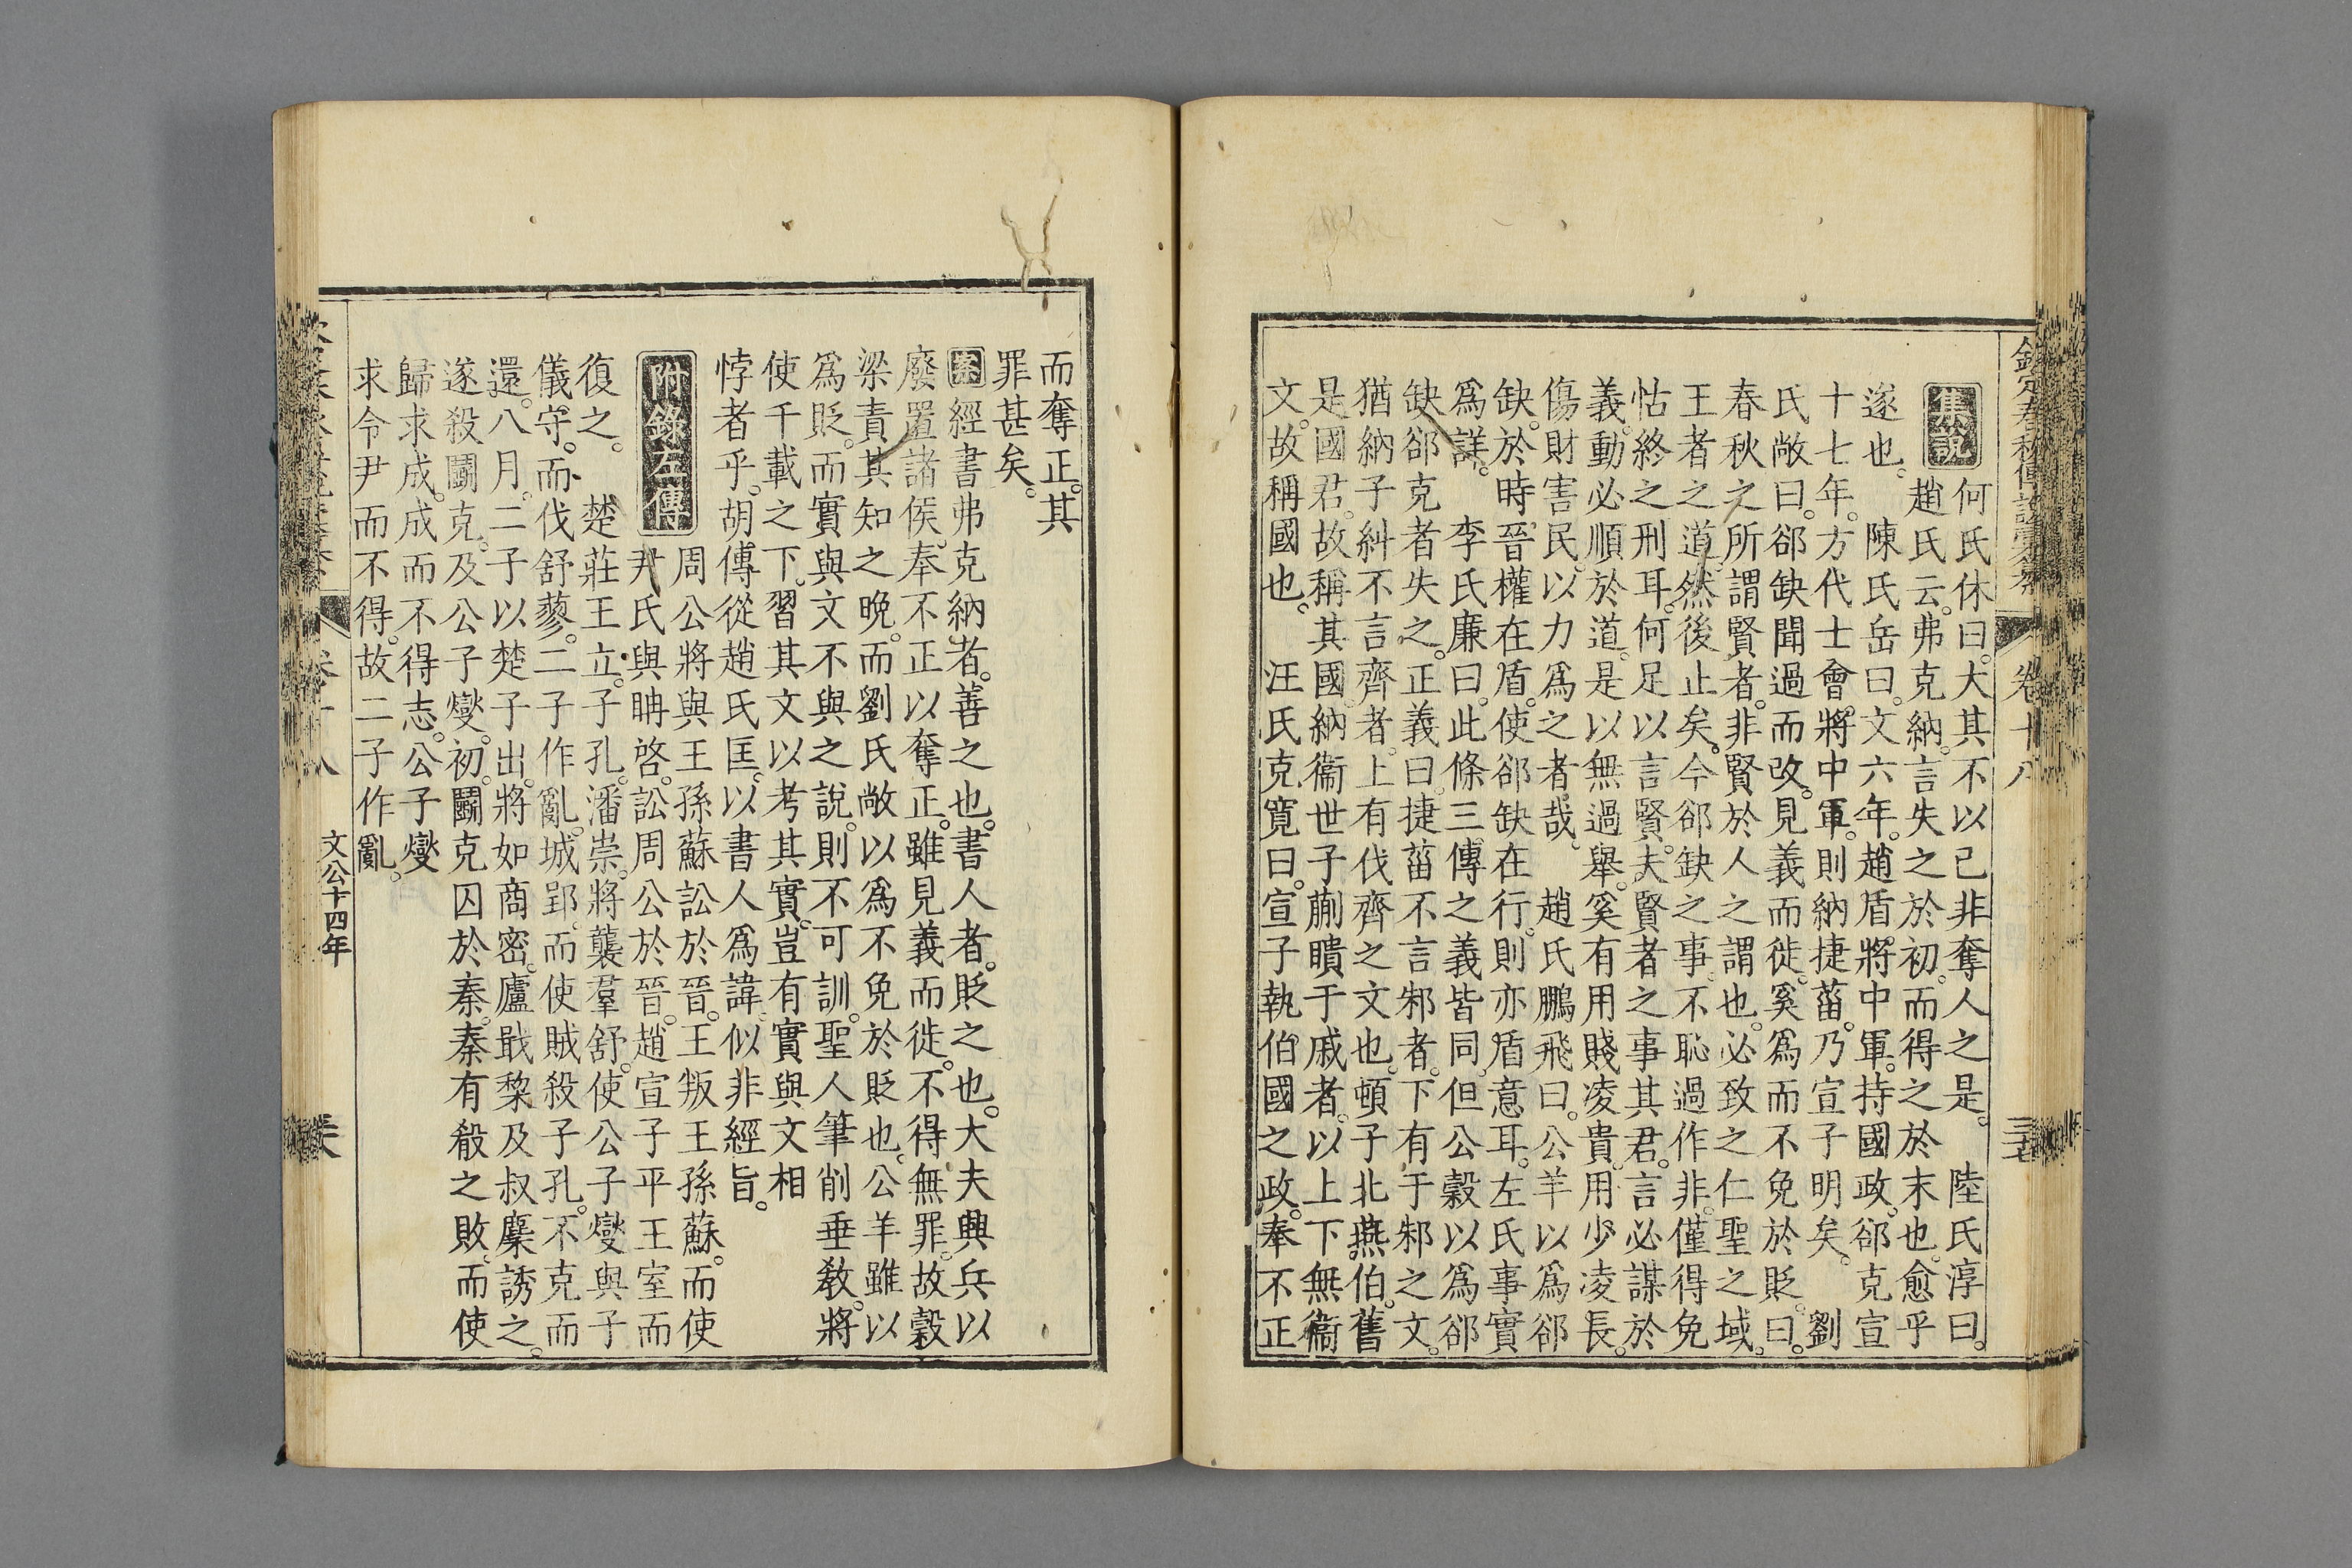 欽定春秋傳說彙纂 卷十八 三七
集說
何氏休曰。大其不以己非奪人之是。 陸氏淳曰。
趙氏云。弗克納。言失之於初。而得之於末也。愈乎
遂也。 陳氏岳曰。文六年。趙盾將中軍。持國政。郤克宣
十七年。方代士會。將中軍。則納捷菑。乃宣子明矣。 劉
氏敞曰。郤缺聞過而改。見義而徙。奚爲而不免於貶。曰。
春秋之所謂賢者。非賢於人之謂也。必致之仁聖之域。
王者之道。然後止矣。今郤缺之事。不恥過作非。僅得免
怙終之刑耳。何足以言賢。夫賢者之事其君。言必謀於
義。動必順於道。是以無過舉。奚有用賤凌貴。用少凌長。
傷財害民。以力爲之者哉。 趙氏鵬飛曰。公羊以爲郤
缺。於時晉權在盾。使郤缺在行。則亦盾意耳。左氏事實
爲詳。 李氏廉曰。此條三傳之義皆同。但公穀以爲郤
缺郤克者失之。正義曰。捷菑不言邾者。下有于邾之文。
猶納子糾不言齊者。上有伐齊之文也。頓子北燕伯。舊
是國君。故稱其國。納衞世子蒯聵于戚者。以上下無衞
文。故稱國也。 汪氏克寬曰。宣子執伯國之政。奉不正
而奪正。其
罪甚矣。
案經書弗克納者。善之也。書人者。貶之也。大夫興兵以
廢置諸侯。奉不正以奪正。雖見義而徙。不得無罪。故穀
梁責其知之晚。而劉氏敞以爲不免於貶也。公羊雖以
爲貶。而實與文不與之說。則不可訓。聖人筆削垂敎。將
使千載之下。習其文以考其實。豈有實與文相
悖者乎。胡傳從趙氏匡。以書人爲諱。似非經旨。
附錄左傳
周公將與王孫蘇訟於晉。王叛王孫蘇。而使
尹氏與聃啓。訟周公於晉。趙宣子平王室而
復之。 楚莊王立。子孔。潘崇。將襲羣舒。使公子燮與子
儀守。而伐舒蓼。二子作亂。城郢。而使賊殺子孔。不克而
還。八月。二子以楚子出。將如商密。廬戢黎及叔麇誘之。
遂殺鬭克。及公子燮。初。鬭克囚於秦。秦有殽之敗。而使
歸求成。成而不得志。公子燮
求令尹而不得。故二子作亂。
文公十四年